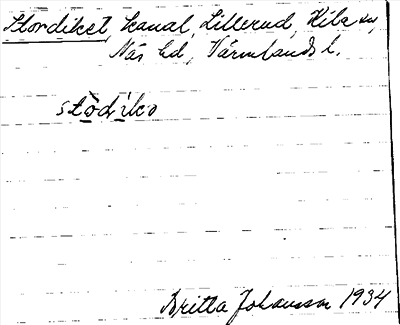 Stordiket, kanal, Lillerud, Kila sn,
Näs hd, Värmlands l.
stòdìkə
Britta Johansson 1934